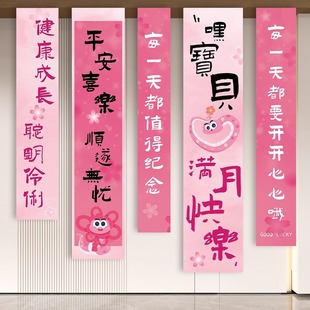 健康成長
聪明伶俐
平安喜樂
順遂無忧
每一天都值得纪念
"嘿
寶貝
滿月快樂
每一天都要开开心心哦
GOOD LUCKY